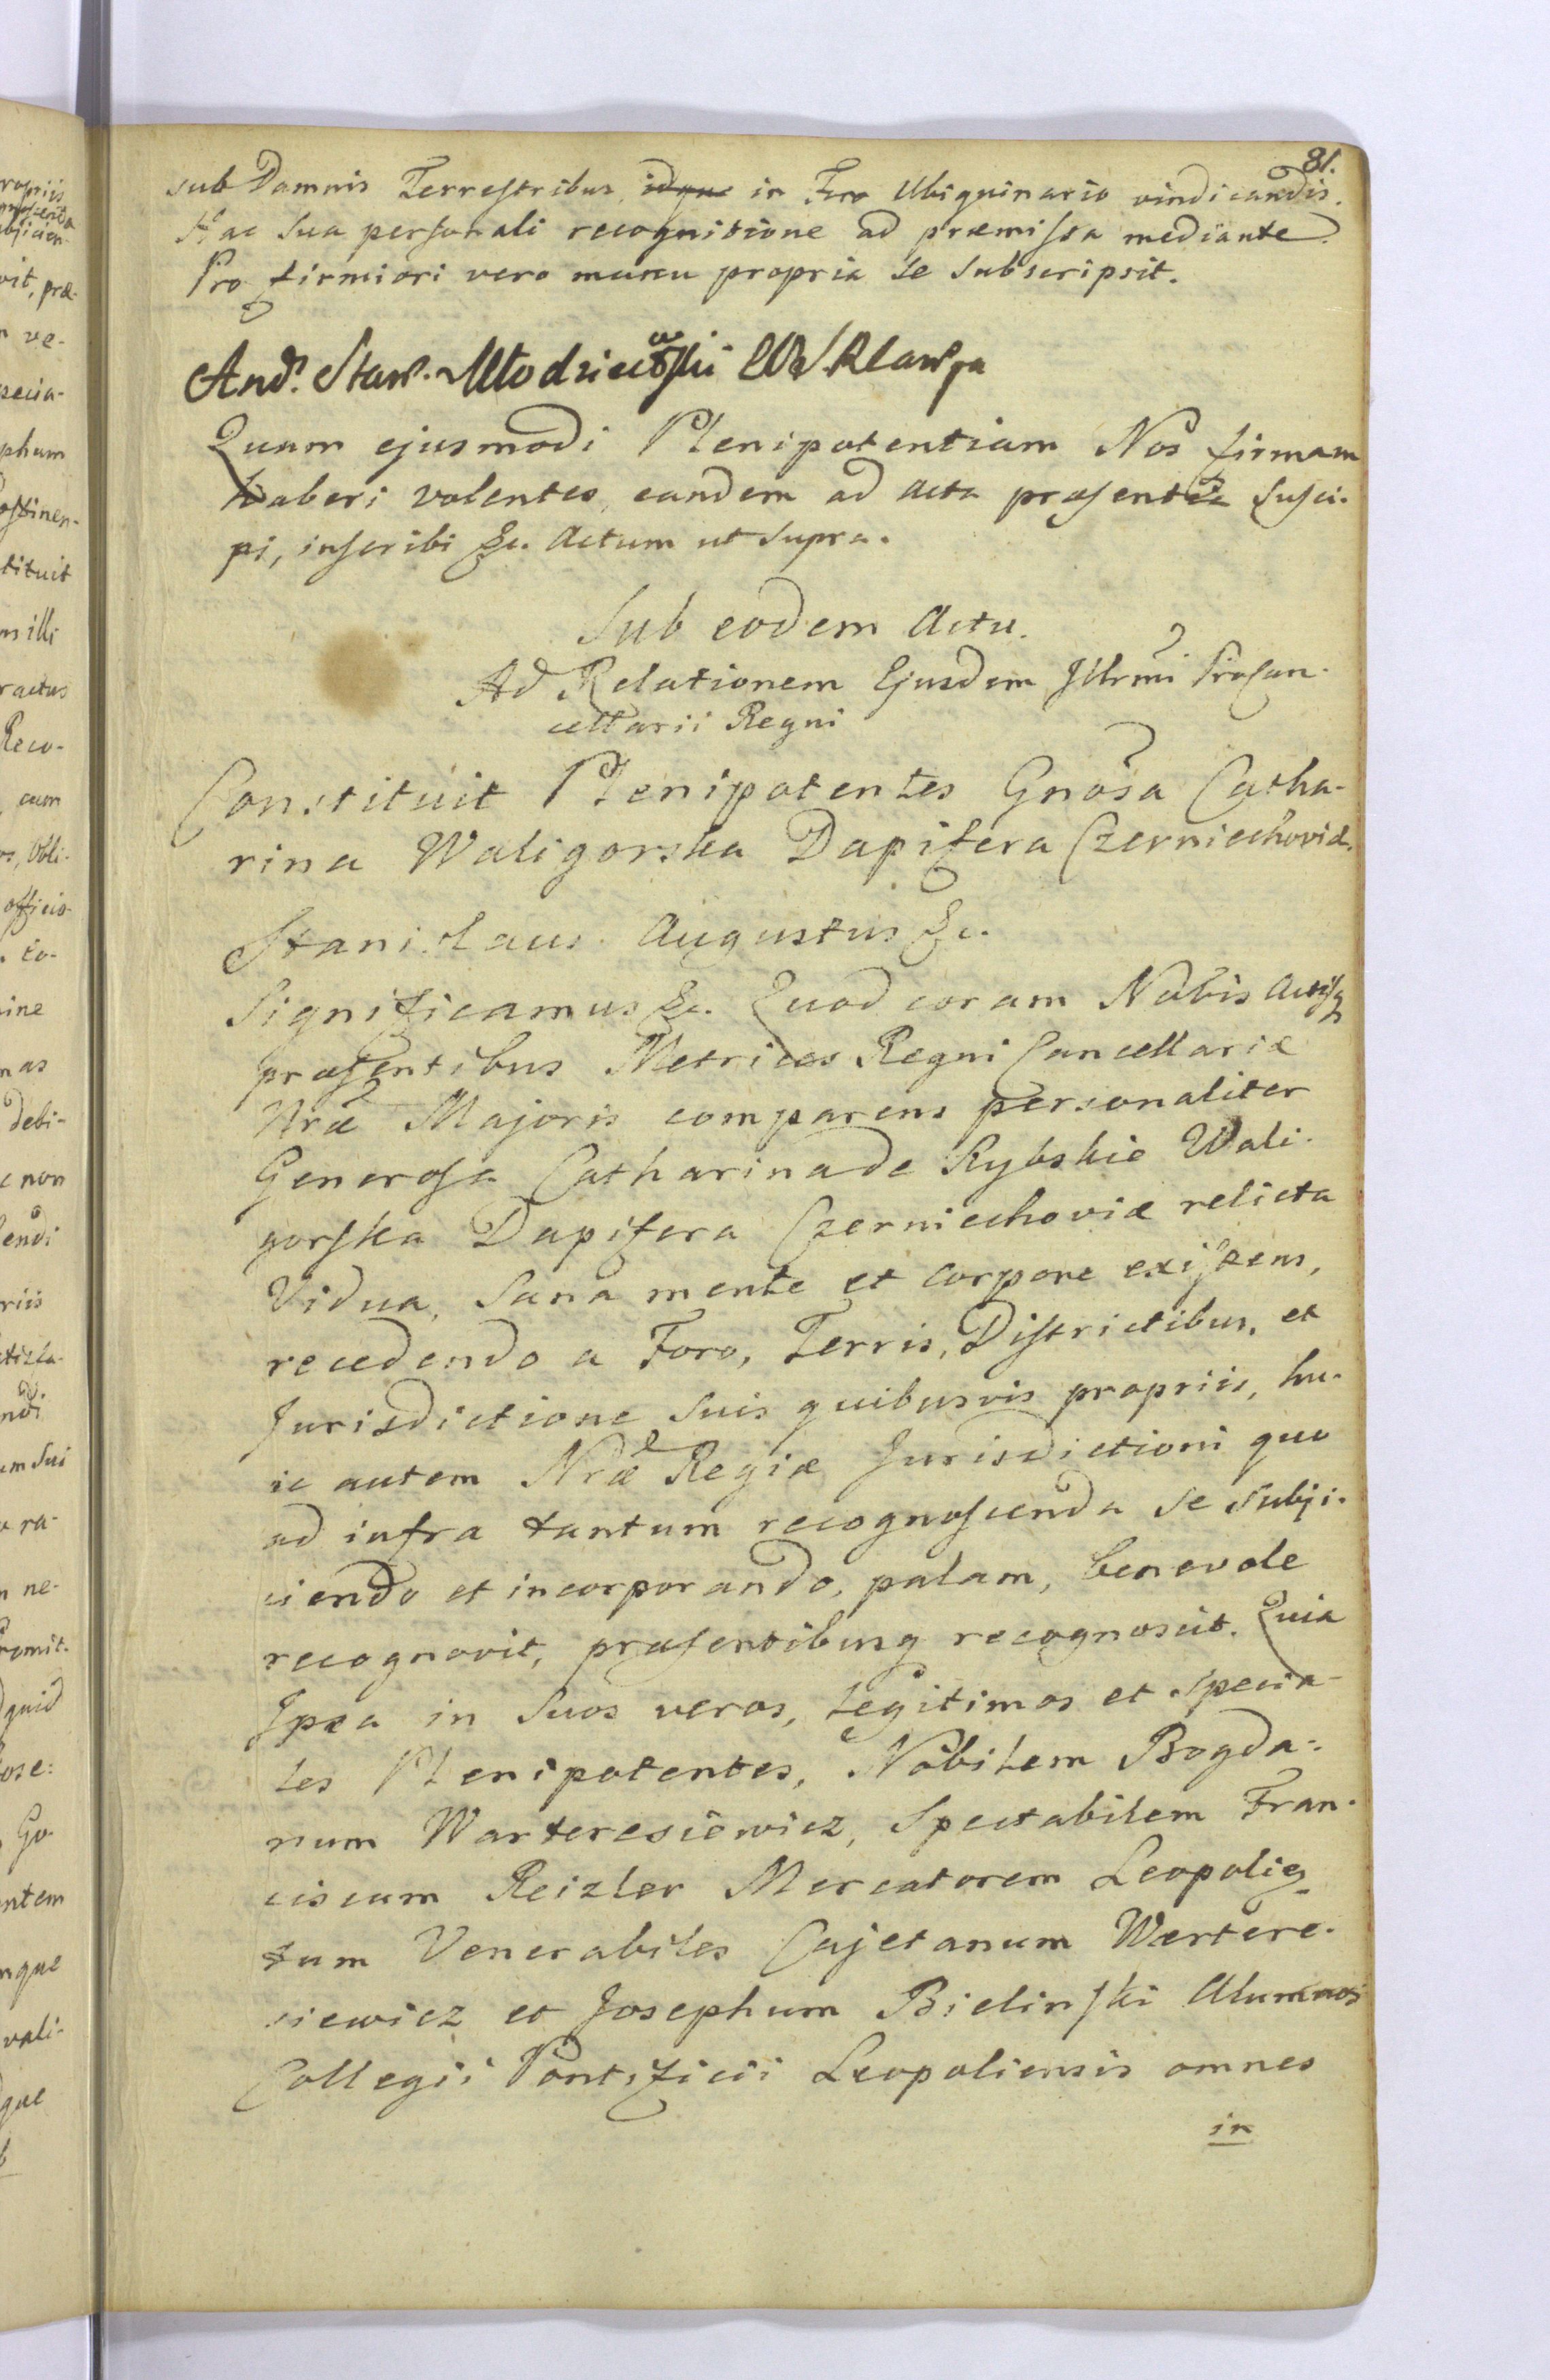 81.
sub Damnis Terrestribus, idque in Foro Ubiquinario vindicandis.
Hac sua personali recognitione ad præmissa mediante
Pro firmiori vero manu propria se subscripsit.
And. Staw. Młodziecowski
Quum ejusmodi Plenipotentiam Nos firmam
haberi volentes, eandem ad Acta præsentia susci-
pi, inscribi &c. Actum ut supra.
Sub eodem Actu.
Ad Relationem Ejusdem Illrmi Procan-
cellarii Regni
Constituit Plenipotentes Gnosa Catha-
rina Waligorska Dapifera Czerniechoviæ.
Stanislaus Augustus &c.
Significamus &c. Quod coram Nobis Actisq
præsentibus Metrices Regni Cancellariæ
Nræ Majoris comparens personaliter
Generosa Catharina de Rybskie Wali-
gorska Dapifera Czerniechoviæ relicta
Vidua, sana mente et corpore existens,
recedendo a Foro, Terris, Districtibus, et
Jurisdictione suis quibusvis propriis, hu-
ic autem Nræ Regiæ Jurisdictioni quo
ad infra tantum recognoscenda se subji-
ciendo et incorporando, palam, benevole
recognovit, præsentibusq recognoscit. Quia
Ipsa in suos veros, legitimos et specia-
les Plenipotentes, Nobilem Bogda-
num Warteresiewicz, Spectabilem Fran-
ciscum Reizler Mercatorem Leopoliẽ,
tum Venerabiles Cajetanum Wartere-
siewicz et Josephum Bielinski Alumnos
Collegii Pontificii Leopoliensis omnes
in